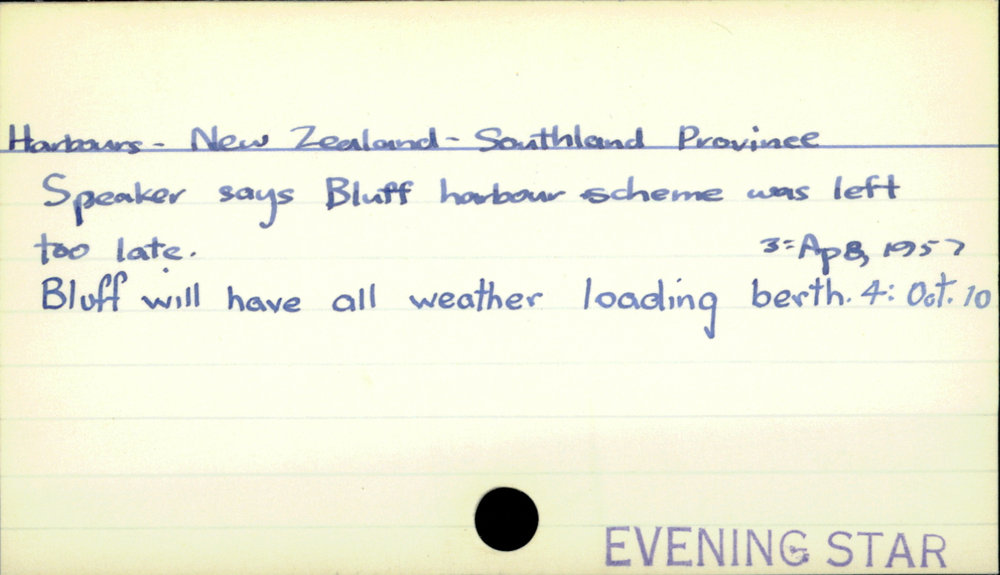 Harbours - New Zealand - Southland Province
Speaker says Bluff harbour scheme was left
too late. 3: Ap 8, 1957
Bluff will have all weather loading berth. 4: Oct. 10
EVENING STAR